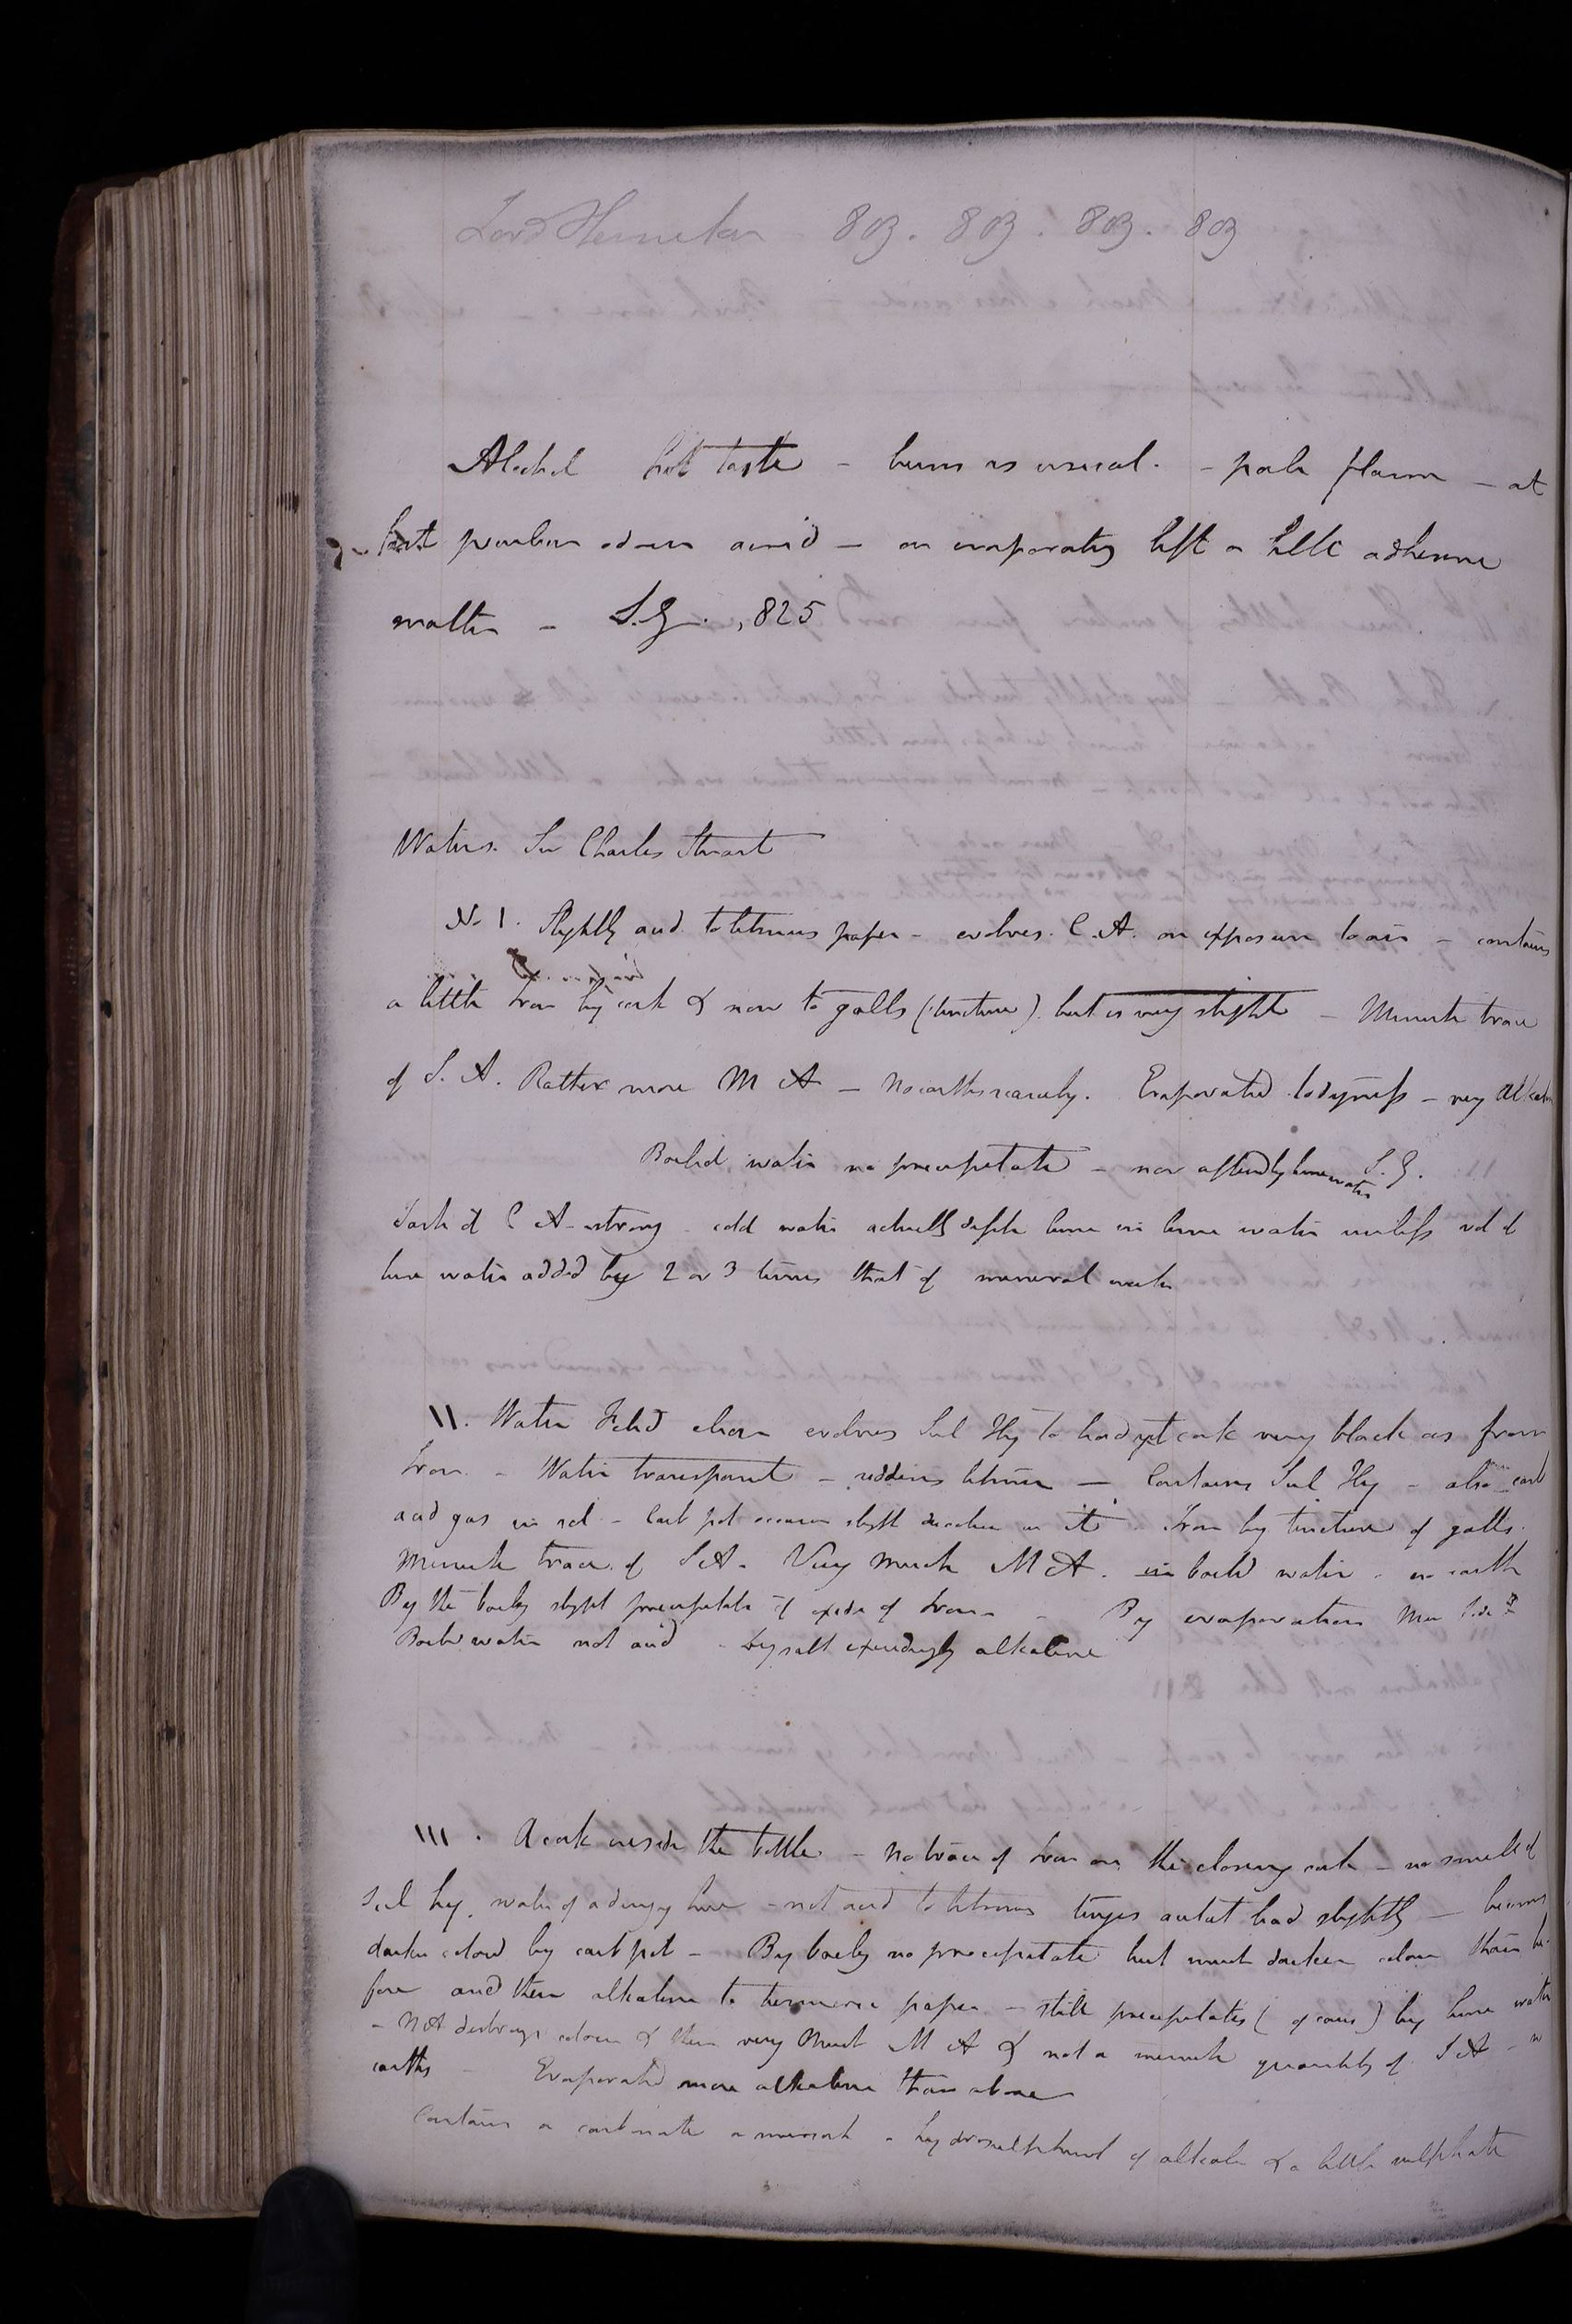 803. 803. 803. 803
Alcohol hot taste - burns as usual. - pale flame - at
last peculiar odour acrid - on evaporating left a little adhesive
matter - S.G. ,825
Waters. Sir Charles Stuart
No 1. Slightly acid to litmus paper - evolves C.A. on exposure to air - contains
a little Iron by cork & now to galls (tincture) but is very slight - Minute trace
of S.A. Rather more M A - No earths scarcely. Evaporated to dryness - very Alkaline
Boiled water no precipitate - nor affected by lime water S.G.
Taste of C A strong cold water actually dissolves lime in lime water unless vol of
lime water added be 2 or 3 times that of mineral water
II. Water Fetid odour evolves Sul Hy to lead yet cork very black as from
Iron. - Water transparent - reddens litmus - Contains Sul Hy - also carb
acid gas in sol - Carb pot occasions slight in it. Iron by tincture of galls.
Minute trace of S A - Very much M A. in boild water - no earth
By the boiling slight precipitate of oxide of Iron - By evaporation Mur Soda &
Boild water not acid - dry salt exceedingly alkaline
III. A cork inside the bottle - No trace of Iron on the closing cork - no smell of
Sul hy. water of a dingy hue - not acid to litmus tinges acetat lead slightly - becomes
darker colord by carb pot - By boiling no precipitate but much darker colour than be-
fore and then alkaline to turmeric paper - still precipitates (of course) by lime water
- N A destroys colour & then very Much M A & not a minute quantity of S A - no
earths Evaporated more alkaline than above
Contains a carbonate a muriate a hydrosulphuret of alkali & a little sulphate